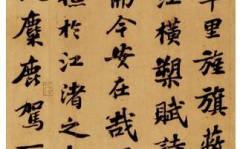 千里旌旗蔽
江橫槊賦詩
而今安在哉
樵於江渚之
麋鹿駕